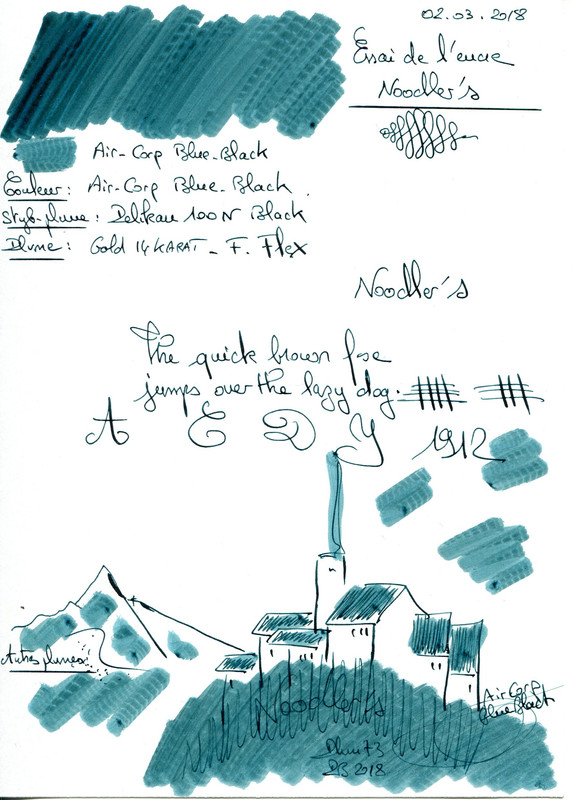 02.03.2018
Essai de l'encre
Noodler's
Air-Corp Blue-Black
Couleur: Air-Corp Blue-Black.
Stylo-plume: Pelikan 100N Black
Plume: Gold 14 KARAT - F. Flex
Noodler's
The quick brown fox
jumps over the lazy dog.
A E D Y 1912
Autres plumes:
Noodler's
Air Corp
Blue Black
Plum73
2018